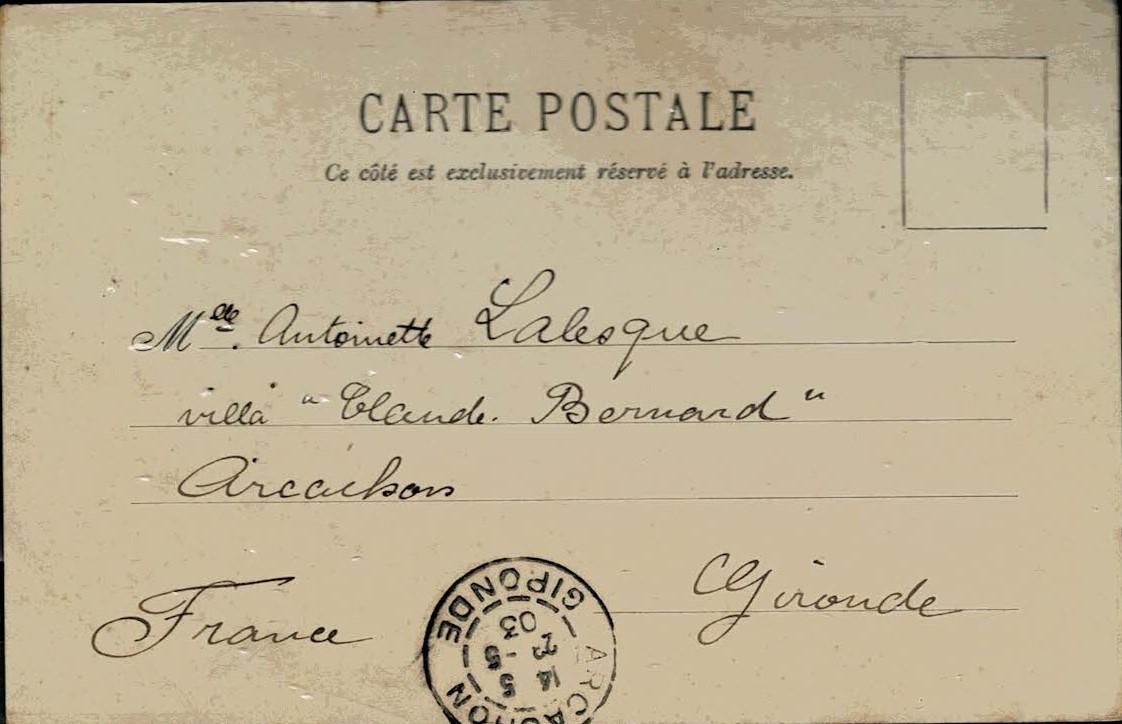 CARTE POSTALE
Ce côté est exclusivement réservé à l'adresse.
Mdle. Antoinette Lalesque
villa "Claude. Bernard"
Arcachon
France
Gironde
ARCACHON
GIRONDE
14 5
03